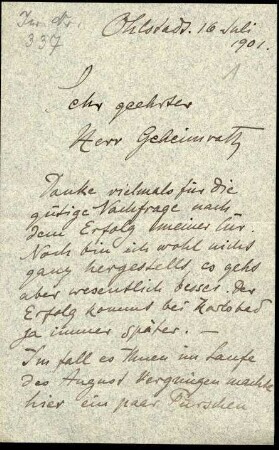 Inv. Nr.
337
Ohlstadt. 16 Juli
1901.
1
Sehr geehrter
Herr Geheimrath
Danke vielmals für die
gütige Nachfrage nach
dem Erfolg meiner Cur.
Noch bin ich wohl nicht
ganz hergestellt, es geht
aber wesentlich besser. Der
Erfolg kommt bei Karlsbad
ja immer später. —
Im fall es Ihnen im Laufe
des August Vergnügen macht
hier ein paar Pürschen